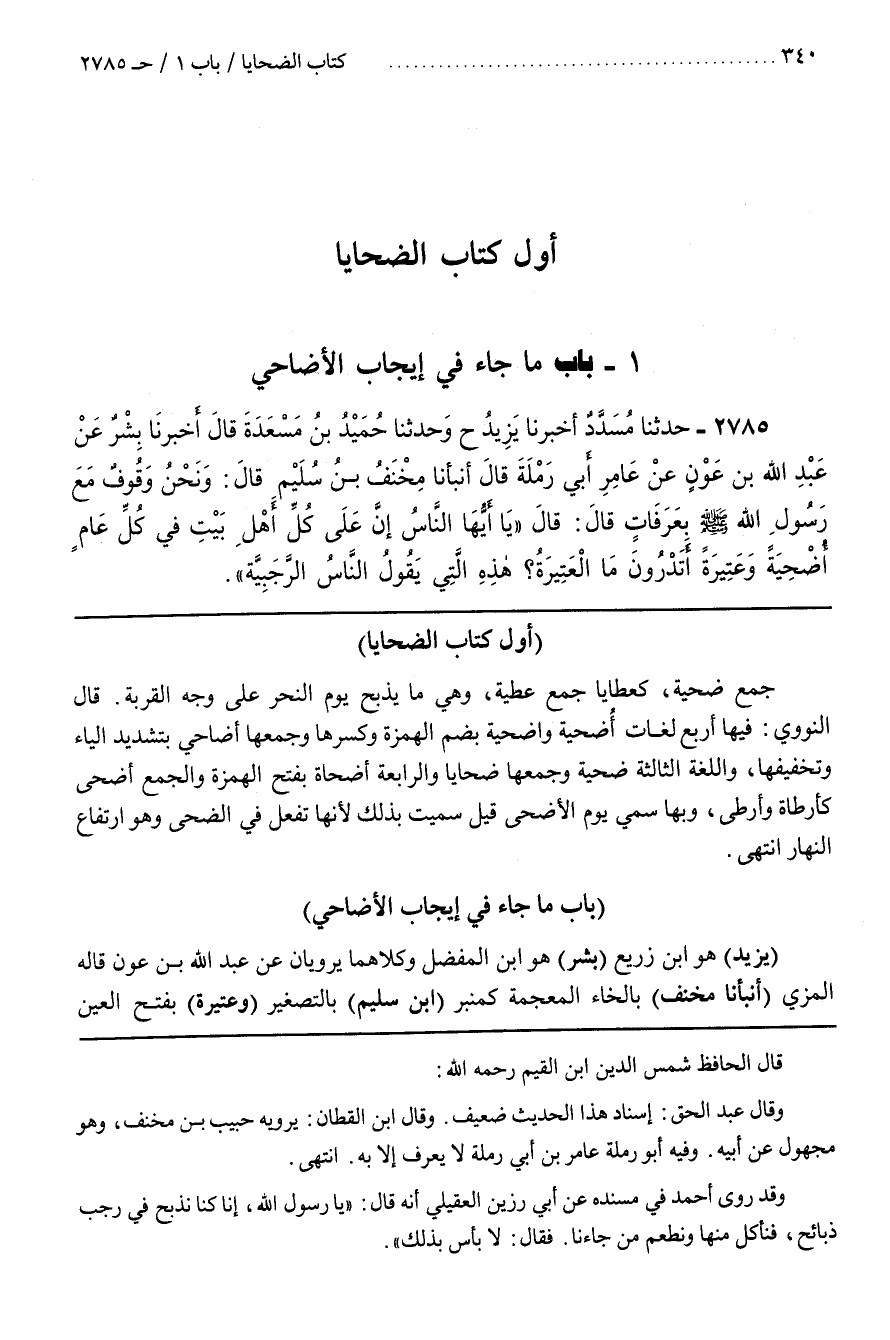 ٣٤٠ ........ كتاب الضحايا / باب ١ / حـ ٢٧٨٥
أول كتاب الضحايا
١ ـ باب ما جاء في إيجاب الأضاحي
٢٧٨٥ ـ حدثنا مُسَدَّدٌ أخبرنا يَزِيدُ ح وَحدثنا حُمَيْدُ بنُ مَسْعَدَةَ قالَ أَخبرنَا بِشْرٌ عَنْ
عَبْدِ الله بن عَوْنٍ عنْ عَامِرِ أَبي رَمْلَةَ قالَ أنبأنا مِخْنَفُ بـنُ سُلَيْمٍ قالَ: وَنَحْنُ وَقُوفٌ مَعَ
رَسُولِ الله ﷺ بِعَرَفَاتٍ قالَ: قالَ «يَا أَيُّهَا النَّاسُ إنَّ عَلَى كُلِّ أَهْلِ بَيْتِ في كُلِّ عَامٍ
أُضْحِيَةً وَعَتِيرَةً أَتَدْرُونَ مَا الْعَتِيرَةُ؟ هٰذِهِ الَّتِي يَقُولُ النَّاسُ الرَّجَبِيَّة».
(أول كتاب الضحايا)
جمع ضحية، كعطايا جمع عطية، وهي ما يذبح يوم النحر على وجه القربة. قال
النووي: فيها أربع لغـات أُضحية واضحية بضم الهمزة وكسرها وجمعها أضاحي بتشديد الياء
وتخفيفها، واللغة الثالثة ضحية وجمعها ضحايا والرابعة أضحاة بفتح الهمزة والجمع أضحى
كأرطاة وأرطى، وبها سمي يوم الأضحى قيل سميت بذلك لأنها تفعل في الضحى وهو ارتفاع
النهار انتهى.
(باب ما جاء في إيجاب الأضاحي)
(يزيد) هو ابن زريع (بشر) هو ابن المفضل وكلاهما يرويان عن عبد الله بـن عون قاله
المزي (أنبأنا مخنف) بالخاء المعجمة كمنبر (ابن سليم) بالتصغير (وعتيرة) بفتـح العين
قال الحافظ شمس الدين ابن القيم رحمه الله:
وقال عبد الحق: إسناد هذا الحديث ضعيف. وقال ابن القطان: يرويه حبيب بـن مخنف، وهو
مجهول عن أبيه. وفيه أبو رملة عامر بن أبي رملة لا يعرف إلا به. انتهى.
وقد روى أحمد في مسنده عن أبي رزين العقيلي أنه قال: «يا رسول الله، إنا كنا نذبح في رجب
ذبائح، فنأكل منها ونطعم من جاءنا. فقال: لا بأس بذلك».